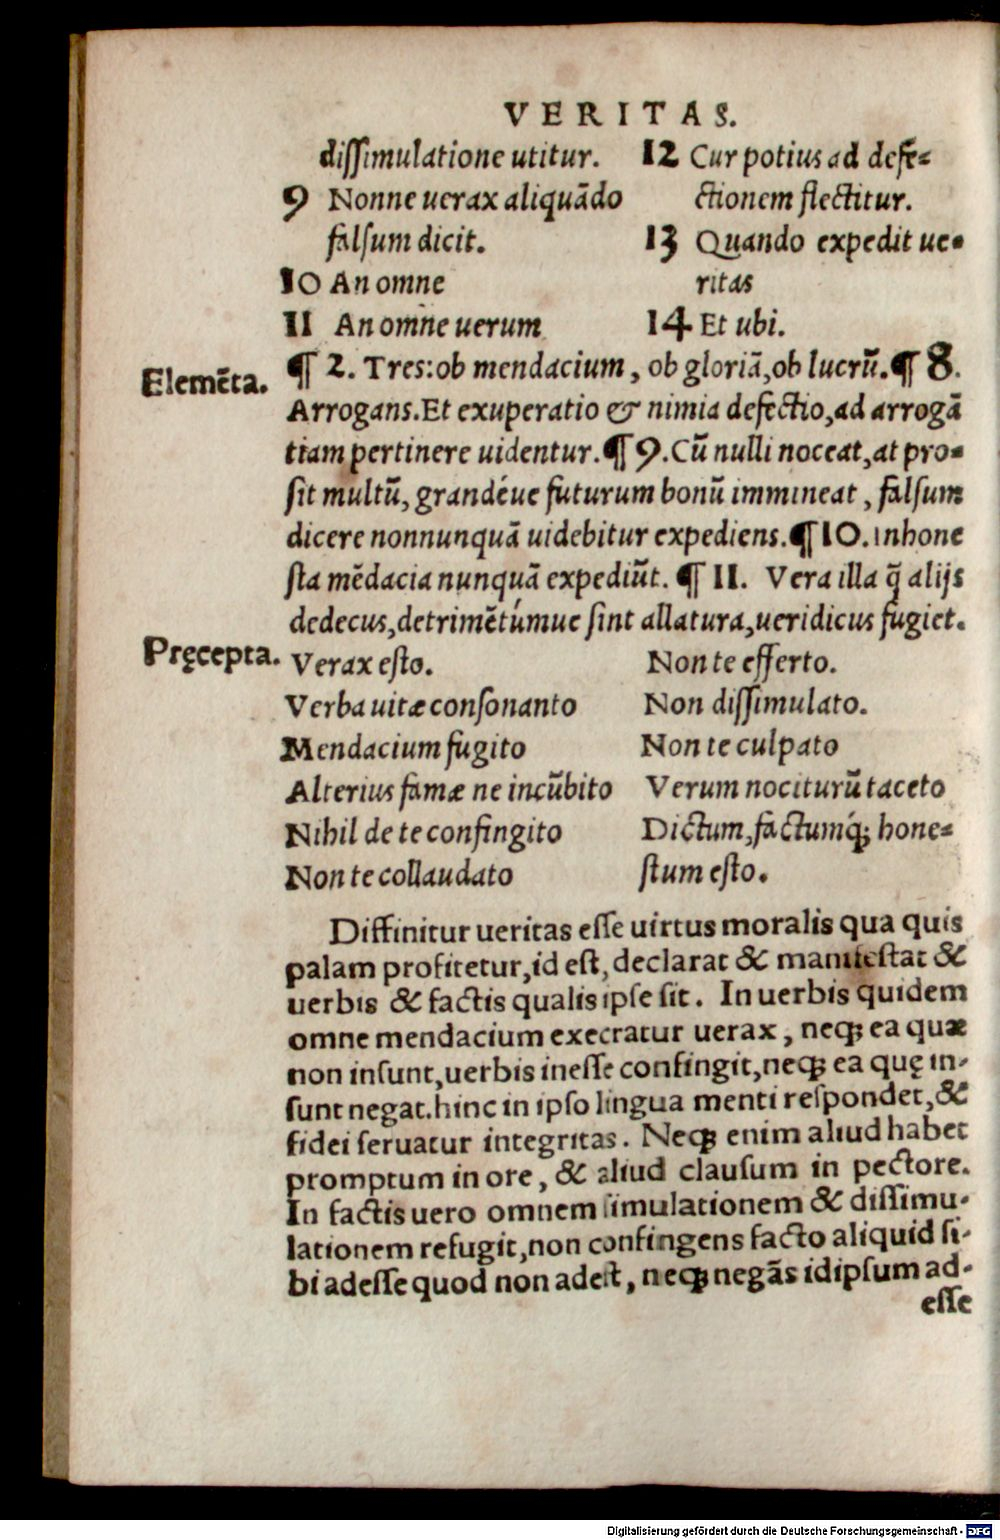 VERITAS.
dissimulatione utitur.
9 Nonne uerax aliquādo
falsum dicit.
10 An omne
11 An omne uerum
12 Cur potius ad defe-
ctionem flectitur.
13 Quando expedit ue-
ritas
14 Et ubi.
Elemēta.
¶ 2. Tres: ob mendacium, ob gloriā, ob lucrū. ¶ 8.
Arrogans. Et exuperatio & nimia defectio, ad arrogā
tiam pertinere uidentur. ¶ 9. Cū nulli noceat, at pro-
sit multū, grandéue futurum bonū immineat, falsum
dicere nonnunquā uidebitur expediens. ¶ 10. inhone
sta mēdacia nunquā expediūt. ¶ 11. Vera illa q̄ alijs
dedecus, detrimētúmue sint allatura, ueridicus fugiet.
Pręcepta.
Verax esto.
Verba uitæ consonanto
Mendacium fugito
Alterius famæ ne incūbito
Nihil de te confingito
Non te collaudato
Non te efferto.
Non dissimulato.
Non te culpato
Verum nociturū taceto
Dictum, factumq́; hone-
stum esto.
Diffinitur ueritas esse uirtus moralis qua quis
palam profitetur, id est, declarat & manifestat &
uerbis & factis qualis ipse sit. In uerbis quidem
omne mendacium execratur uerax, neq; ea quæ
non insunt, uerbis inesse confingit, neq; ea quę in-
sunt negat. hinc in ipso lingua menti respondet, &
fidei seruatur integritas. Neq; enim aliud habet
promptum in ore, & aliud clausum in pectore.
In factis uero omnem simulationem & dissimu-
lationem refugit, non confingens facto aliquid si-
bi adesse quod non adest, neq; negās idipsum ad-
esse
Digitalisierung gefördert durch die Deutsche Forschungsgemeinschaft - DFG